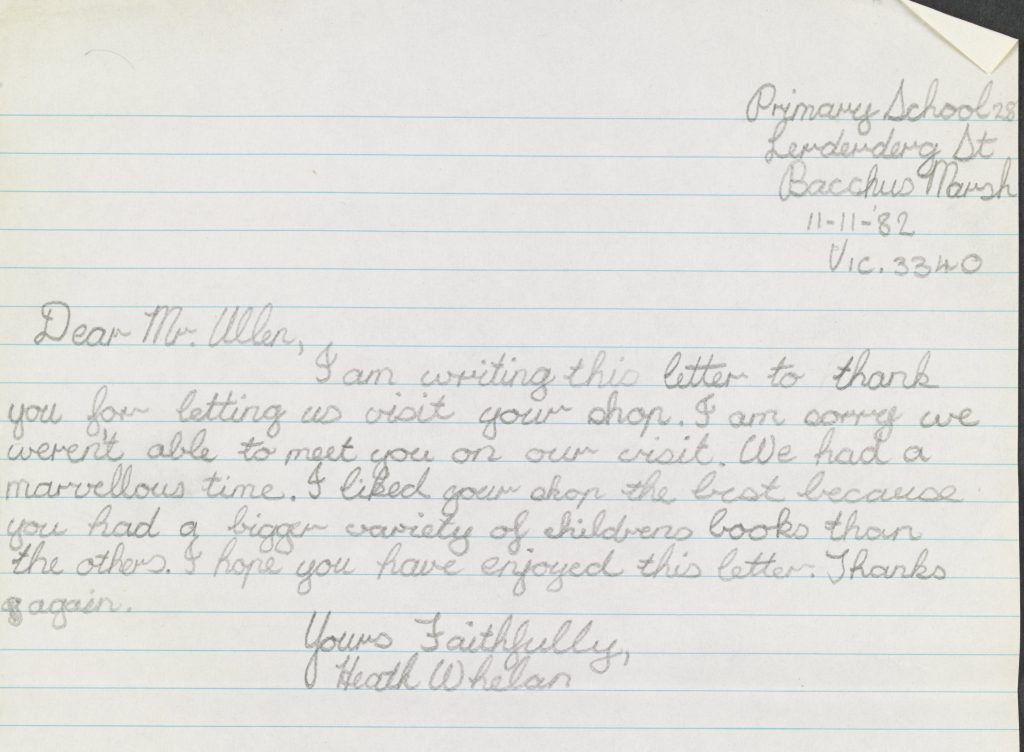 Primary School 28
Lerderderg St
Bacchus Marsh
11-11-'82
Vic. 3340
Dear Mr. Ullen,
I am writing this letter to thank
you for letting us visit your shop. I am sorry we
weren't able to meet you on our visit. We had a
marvellous time. I liked your shop the best because
you had a bigger variety of childrens books than
the others. I hope you have enjoyed this letter. Thanks
again.
Yours Faithfully,
Heath Whelan